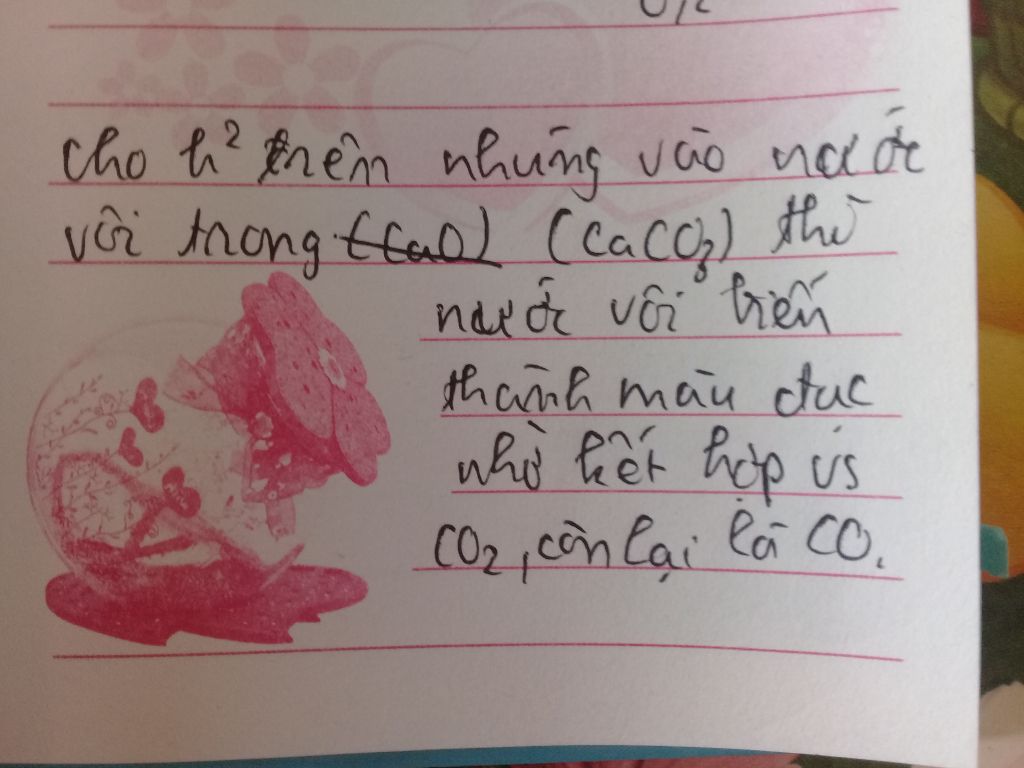 cho h² trên nhúng vào nước
vôi trong (CaO) (CaCO3) thì
nước vôi biến
thành màu đục
nhờ kết hợp vs
CO2, còn lại là CO.